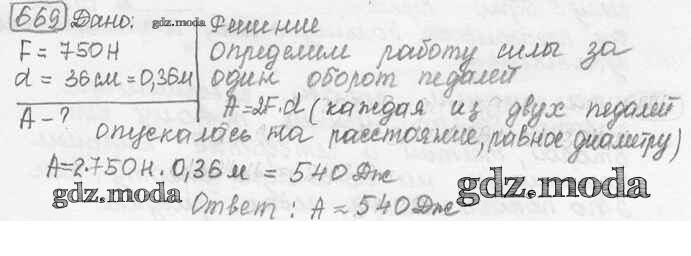 669 Дано: gdz.moda Решение
F = 750Н Определим работу силы за
d = 36 см = 0,36м один оборот педалей
A - ? A = 2F·d (каждая из двух педалей
опускалась на расстояние, равное диаметру)
A = 2·750Н·0,36м = 540 Дж
gdz.moda gdz.moda
Ответ: A = 540 Дж